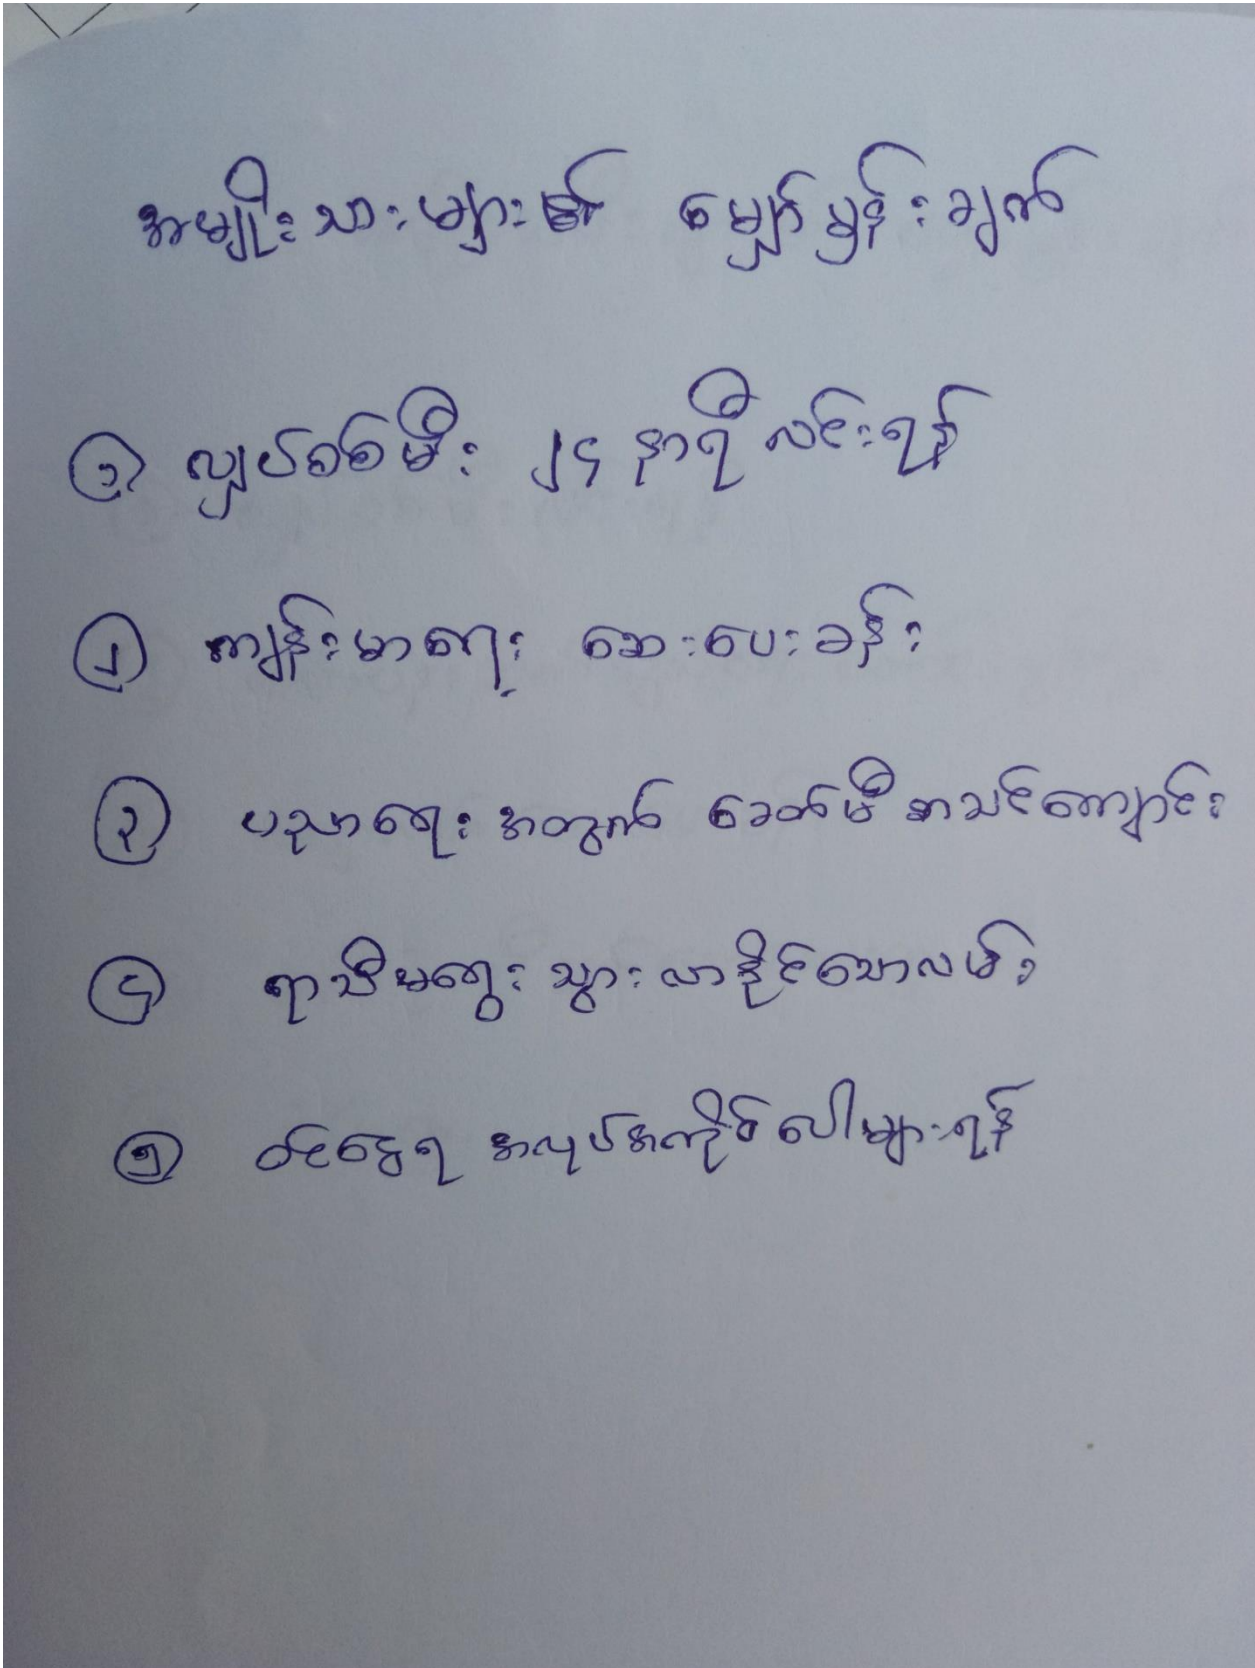 အမျိုးသားများ၏ မျှော်မှန်းချက်
၁ လျှပ်စစ်မီး ၂၄ နာရီ လင်းရန်
၂ ကျန်းမာရေး ဆေးပေးခန်း
၃ ပညာရေး အတွက် ခေတ်မီ စာသင်ကျောင်း
၄ ရာသီမရွေး သွားလာနိုင်သောလမ်း
၅ ဝင်ငွေရ အလုပ်အကိုင် ပေါများရန်